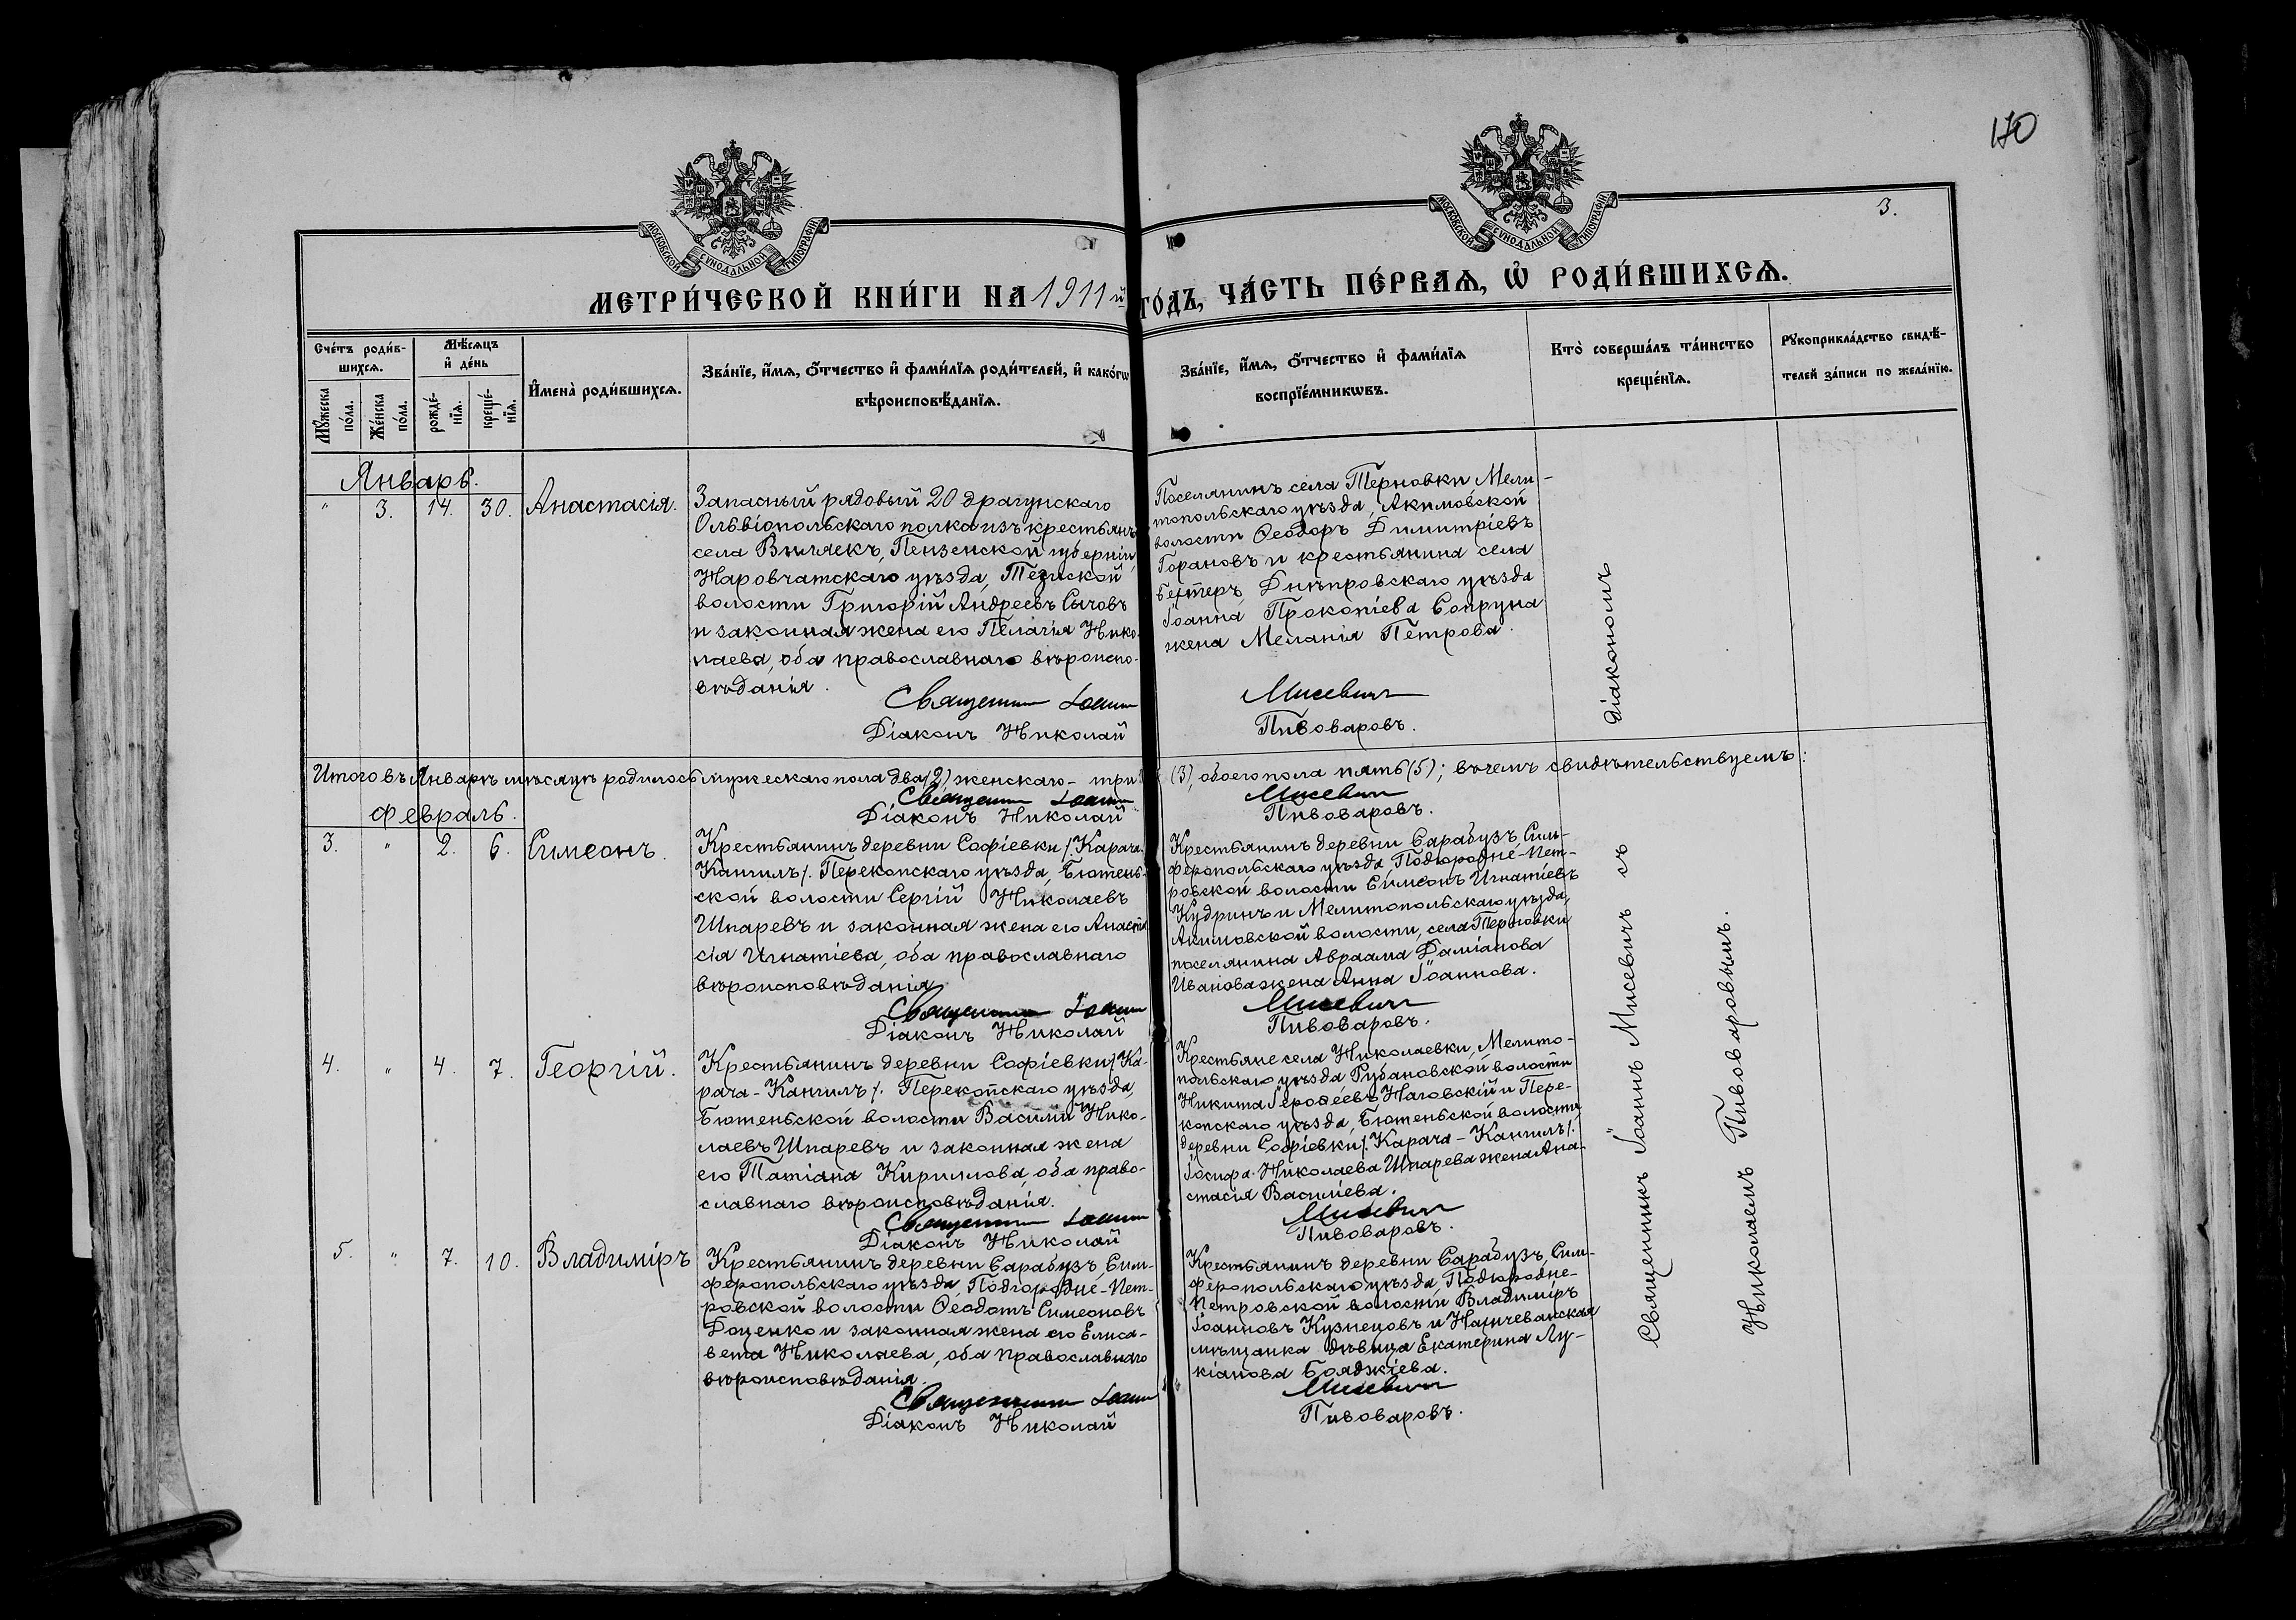 170
3.
МОСКОВСКОЙ СѴНОДАЛЬНОЙ ТИПОГРАФІИ
МОСКОВСКОЙ СѴНОДАЛЬНОЙ ТИПОГРАФІИ
МЕТРИ́ЧЕСКОЙ КНИ́ГИ НА 1911 й ГО́ДЪ, ЧА́СТЬ ПЕ́РВАѦ, Ѡ҆ РОДИ́ВШИХСѦ.
Сче́тъ роди́в-
шихсѧ.
Мꙋ́жеска
по́ла.
Же́нска
по́ла.
Мѣ́сѧцъ
и҆ де́нь
рожде́-
нїѧ.
креще́-
нїѧ.
И҆мена̀ роди́вшихсѧ.
Зва́нїе, и҆́мѧ, ѻ҆́тчество и҆ фами́лїѧ роди́телей, и҆ како́гѡ
вѣроисповѣ́данїѧ.
Зва́нїе, и҆́мѧ, ѻ҆́тчество и҆ фами́лїѧ
воспрїе́мникѡвъ.
Кто̀ соверша́лъ та́инство
креще́нїѧ.
Рꙋкоприкла́дство свидѣ́-
телей за́писи по жела́нїю.
Январь.
" 3. 14. 30. Анастасія.
Запасный рядовый 20 драгунскаго
Ольвіопольскаго полка изъ крестьянъ
села Виляекъ, Пензенской губерніи,
Наровчатскаго уѣзда,
волости Григорій Андреевъ Сычовъ
и законная жена его Пелагія Нико-
лаева, оба православнаго вѣроиспо-
вѣданія.
Священникъ Іоаннъ
Діаконъ Николай
Поселянинъ села Терновки Мели-
топольскаго уѣзда, Акимовской
волости Ѳеодоръ Димитріевъ
Горановъ и крестьянина села
Днѣпровскаго уѣзда
Іоанна Прокопіева Сопруна
жена Меланія Петрова.
Мисевичъ
Пивоваровъ.
Итого въ Январѣ мѣсяцѣ родилось мужескаго пола два (2) женскаго - три (3), обоего пола пять (5); въ чемъ свидѣтельствуемъ:
Священникъ Іоаннъ Мисевичъ
Діаконъ Николай Пивоваровъ.
Февраль.
3. " 2. 6. Симеонъ.
Крестьянинъ деревни Софіевки /Карача-
Кангилъ/. Перекопскаго уѣзда, Бютень-
ской волости Сергій Николаевъ
Шпаревъ и законная жена его Анаста-
сія Игнатіева, оба православнаго
вѣроисповѣданія.
Священникъ Іоаннъ
Діаконъ Николай
Крестьянинъ деревни Сарабузъ, Сим-
феропольскаго уѣзда, Подгородне-Пет-
ровской волости Симеонъ Игнатіевъ
Кудринъ и Мелитопольскаго уѣзда,
Акимовской волости, села Терновки
поселянина Авраама Даміанова
Иванова жена Анна Іоаннова.
Мисевичъ
Пивоваровъ.
4. " 4. 7. Георгій.
Крестьянинъ деревни Софіевки /Ка-
рача-Кангилъ/. Перекопскаго уѣзда,
Бютеньской волости Василій Нико-
лаевъ Шпаревъ и законная жена
его Татіана Кириллова, оба право-
славнаго вѣроисповѣданія.
Священникъ Іоаннъ
Діаконъ Николай
Крестьяне села Николаевки, Мелито-
польскаго уѣзда Рубановской волости
Никита Іероѳеевъ Наговскій и Пере-
копскаго уѣзда, Бютеньской волости
деревни Софіевки /. Карача-Кангилъ/.
Іосифа Николаева Шпарева жена Ана-
стасія Василіева.
Мисевичъ
Пивоваровъ.
5. " 7. 10. Владиміръ
Крестьянинъ деревни Сарабузъ, Сим-
феропольскаго уѣзда, Подгородне-Пет-
ровской волости Ѳеодотъ Симеоновъ
Доценко и законная жена его Елиса-
вета Николаева, оба православнаго
вѣроисповѣданія.
Священникъ Іоаннъ
Діаконъ Николай
Крестьянинъ деревни Сарабузъ, Сим-
феропольскаго уѣзда, Подгородне-
Петровской волости Владиміръ
Іоанновъ Кузнецовъ и Нахичеванская
мѣщанка дѣвица Екатерина Лу-
кіанова Бояджіева.
Мисевичъ
Пивоваровъ.
Священникъ Іоаннъ Мисевичъ съ діакономъ
Николаемъ Пивоваровымъ.